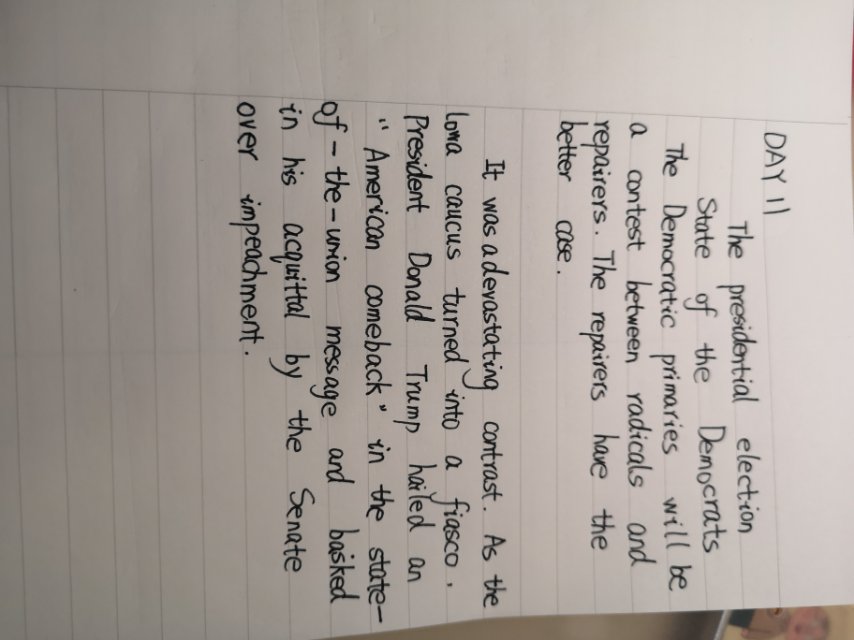 DAY 11
The presidential election
State of the Democrats
The Democratic primaries will be
a contest between radicals and
repairers. The repairers have the
better case.
It was a devastating contrast. As the
Iowa caucus turned into a fiasco,
President Donald Trump hailed an
"American comeback" in the state-
of-the-union message and basked
in his acquittal by the Senate
over impeachment.